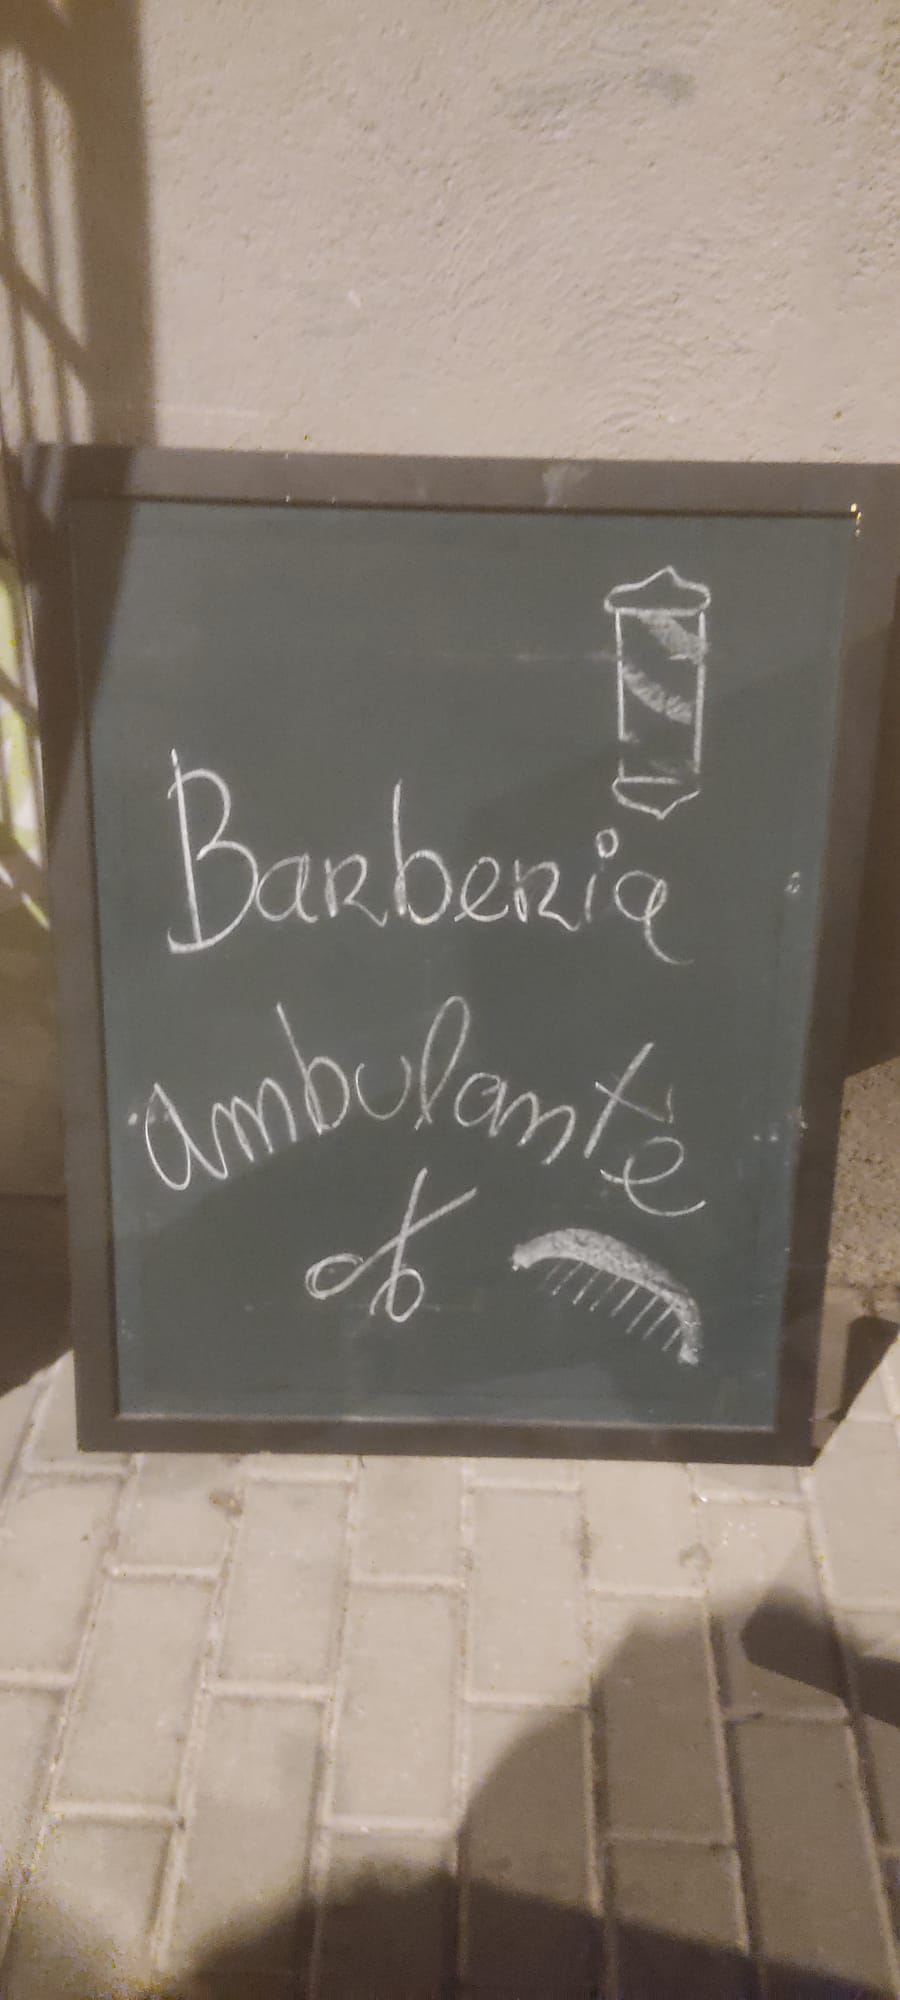 Barberia
ambulante